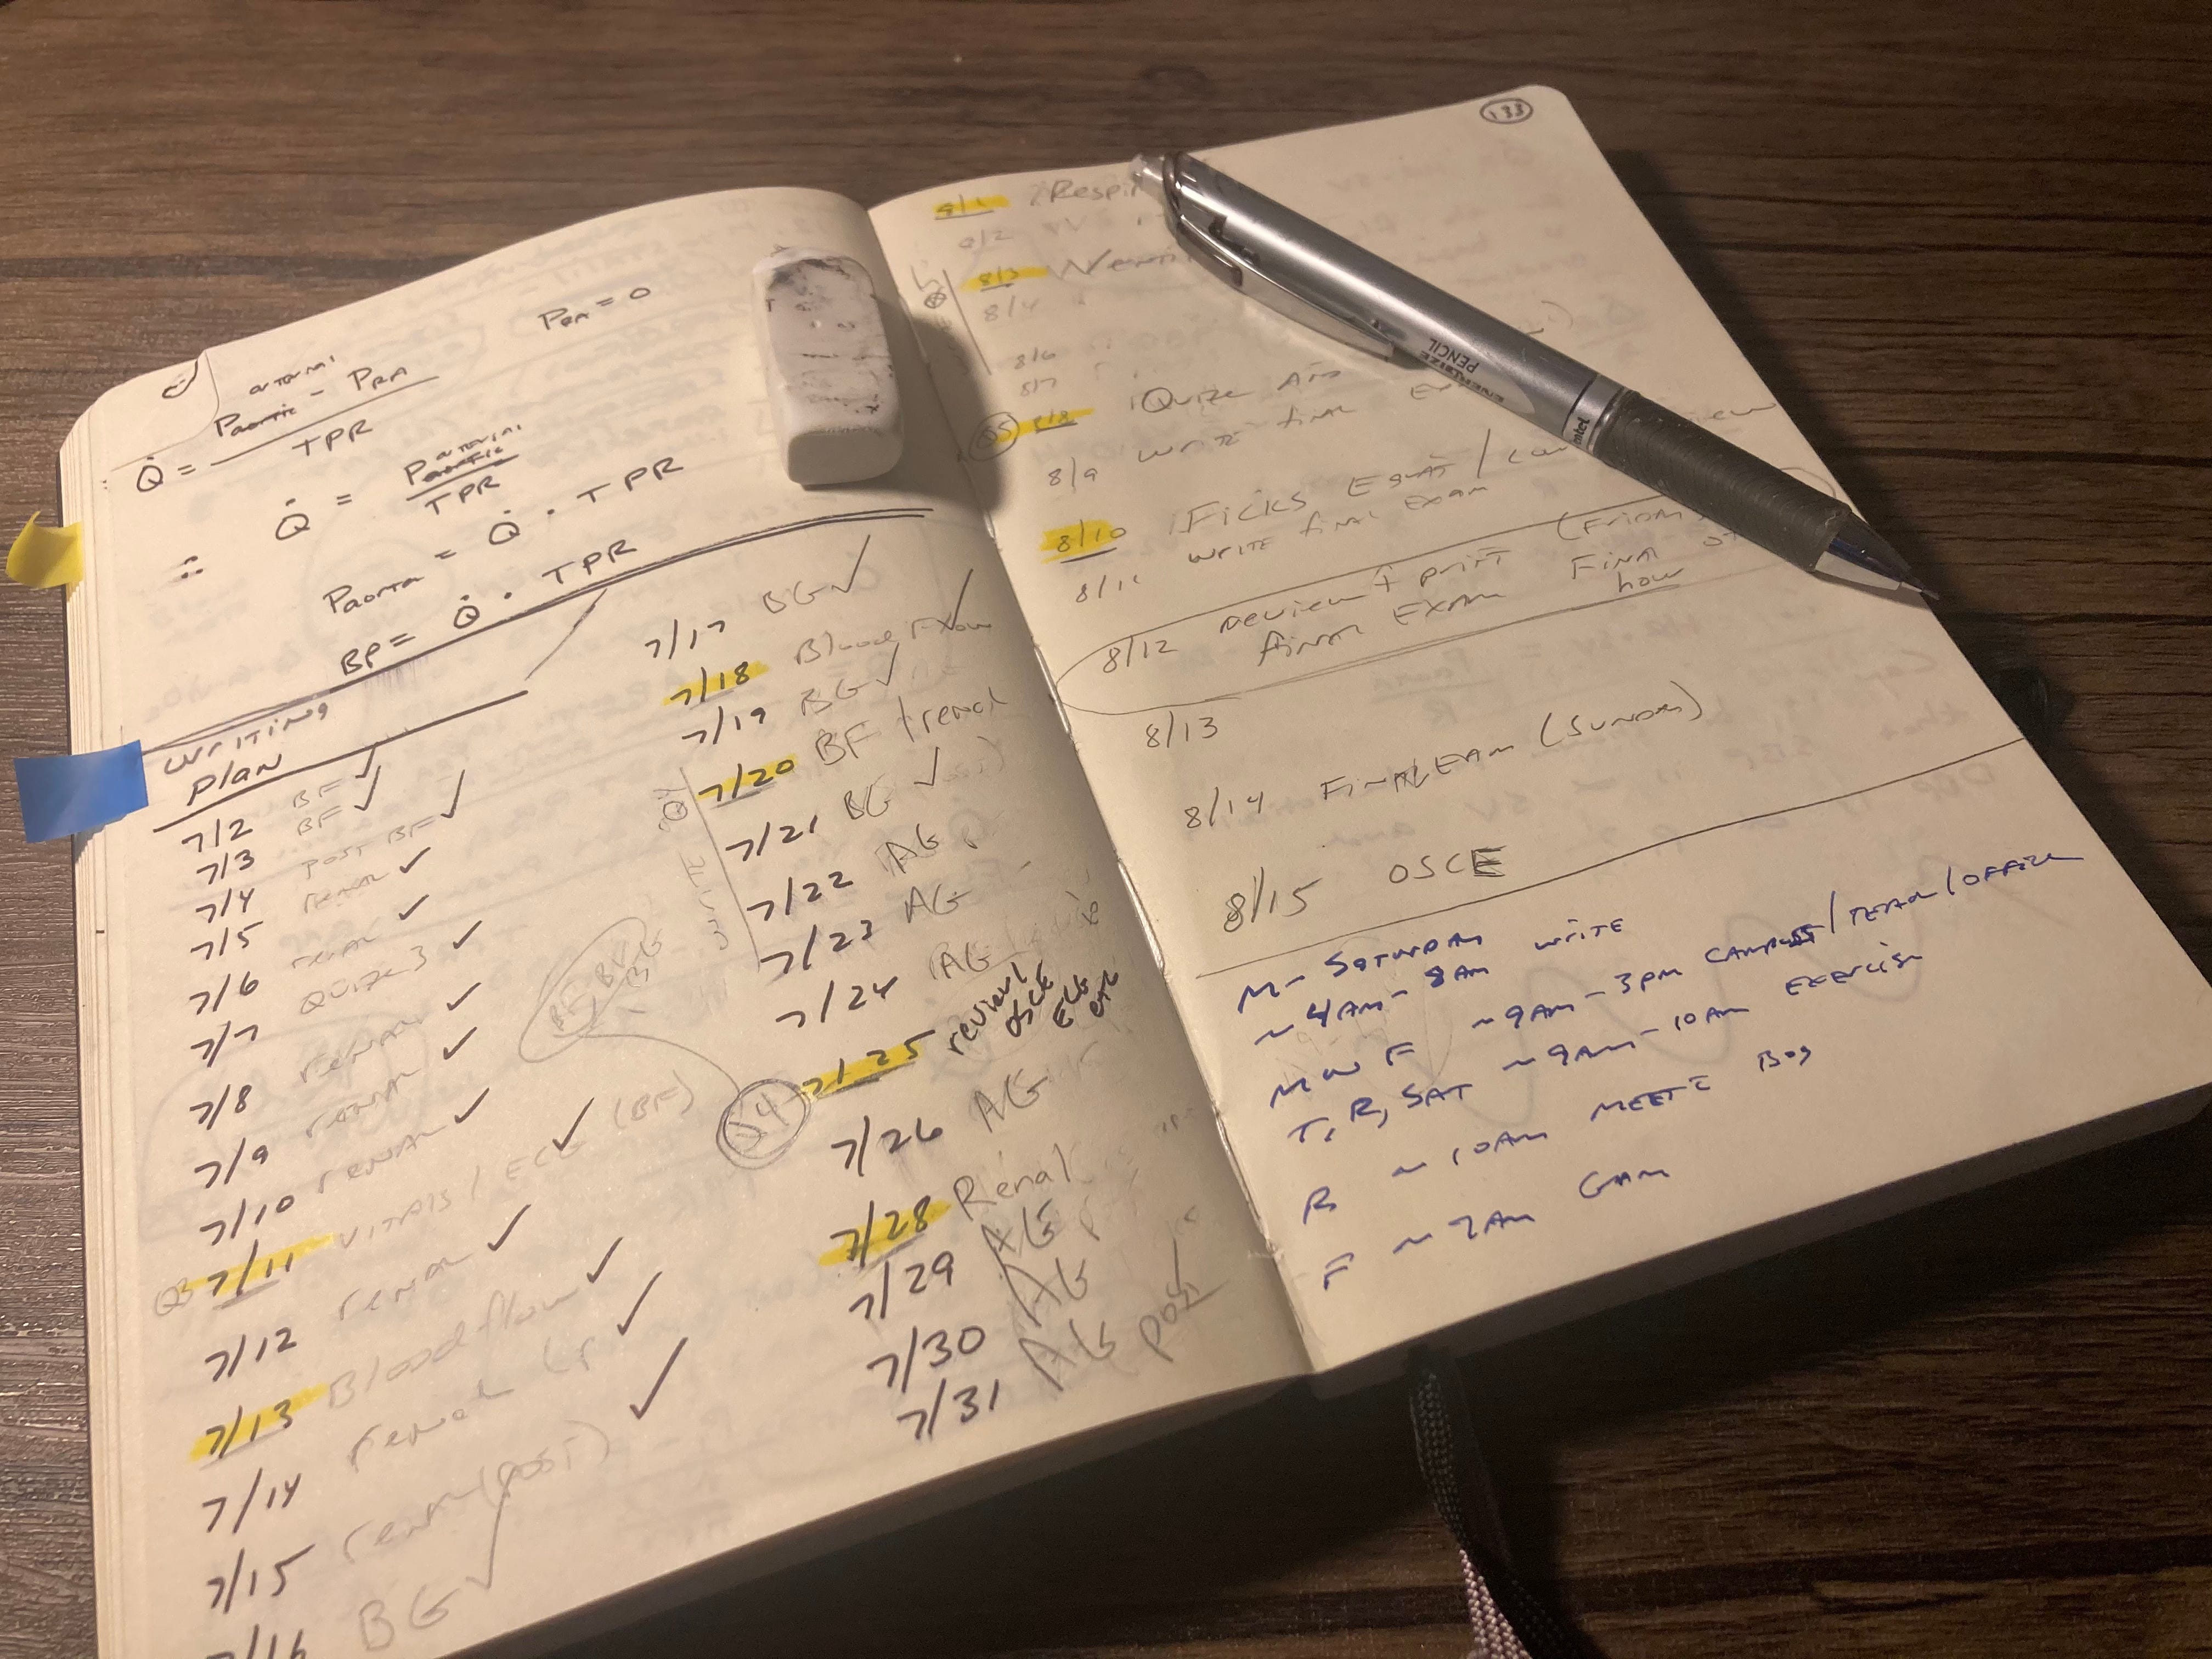 arterial
Paortic - PRA
Q̇ =
TPR
PRA = 0
arterial
∴ Q̇ = Paortic
TPR
Paorta = Q̇ · TPR
BP = Q̇ · TPR
Writing
plan
7/2 BF ✓
7/3 BF ✓
7/4 post BF ✓
7/5 renal ✓
7/6 renal ✓
7/7 Quize 3 ✓
7/8 renal ✓
7/9 renal ✓
7/10 renal ✓
Q3 7/11 Vitals / ECG ✓ (BF)
7/12 renal ✓
7/13 Blood flow ✓
7/14 renal ✓
7/15 renal (post) ✓
7/16 BG ✓
7/17 BG ✓
7/18 Blood Flow ✓
7/19 BG ✓
7/20 BF / renal
7/21 BG ✓
7/22 AG
7/23 AG
7/24 AG
Q4 7/25 review
OSCE
ECG
7/26 AG
7/28 Renal
7/29 AG
7/30 AG
7/31 AG post
133
8/1 Respir
8/2
8/3 Venti
8/4
8/6
8/7
Q5 8/8 Quize
8/9 write final
8/10 Ficks Equat /
write final exam
8/11
8/12 review + print (Friday
final Exam Final
how
8/13
8/14 Final Eam (Sunday)
8/15 OSCE
M - Saturday
~ 4AM - 8AM write
M W F ~9AM - 3PM campus / teach / office
T, R, SAT ~9AM - 10AM exercise
R ~ 10AM meet Bog
F ~ 7AM Gam
ENERGIZE
PENCIL